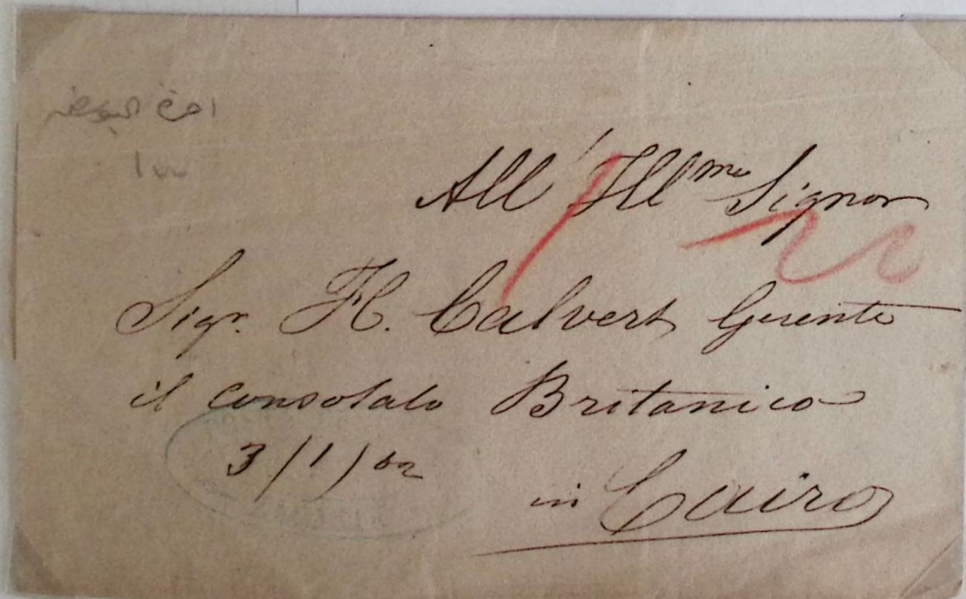 All' Ill^mo Signor
Sigr. H. Calvert Gerente
il consolato Britanico
3/1/62
in Cairo